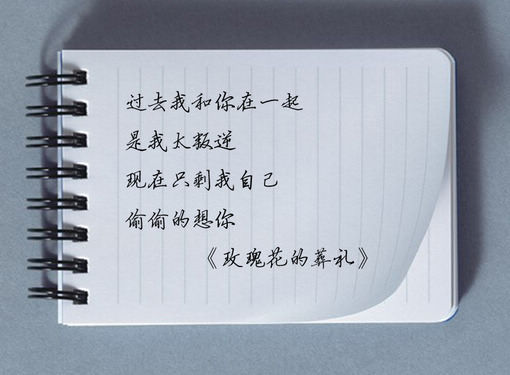 过去我和你在一起
是我太叛逆
现在只剩我自己
偷偷的想你
《玫瑰花的葬礼》